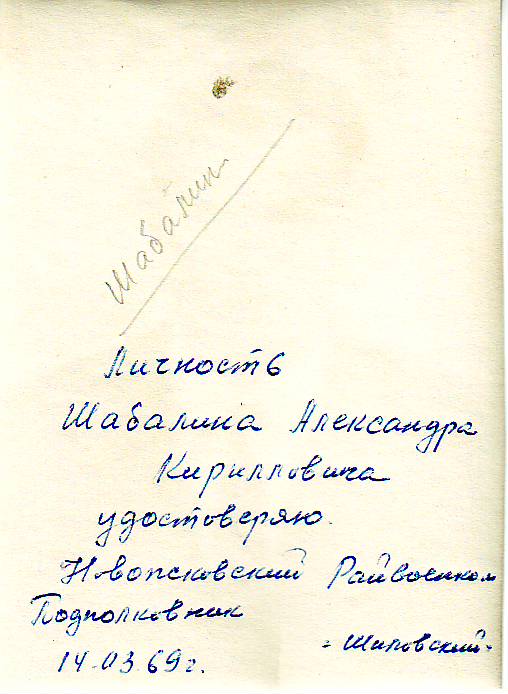 Шабалин
Личность
Шабалина Александра
Кирилловича
удостоверяю.
Новопсковский Райвоенком
Подполковник
- Шиповский -
14.03.69г.